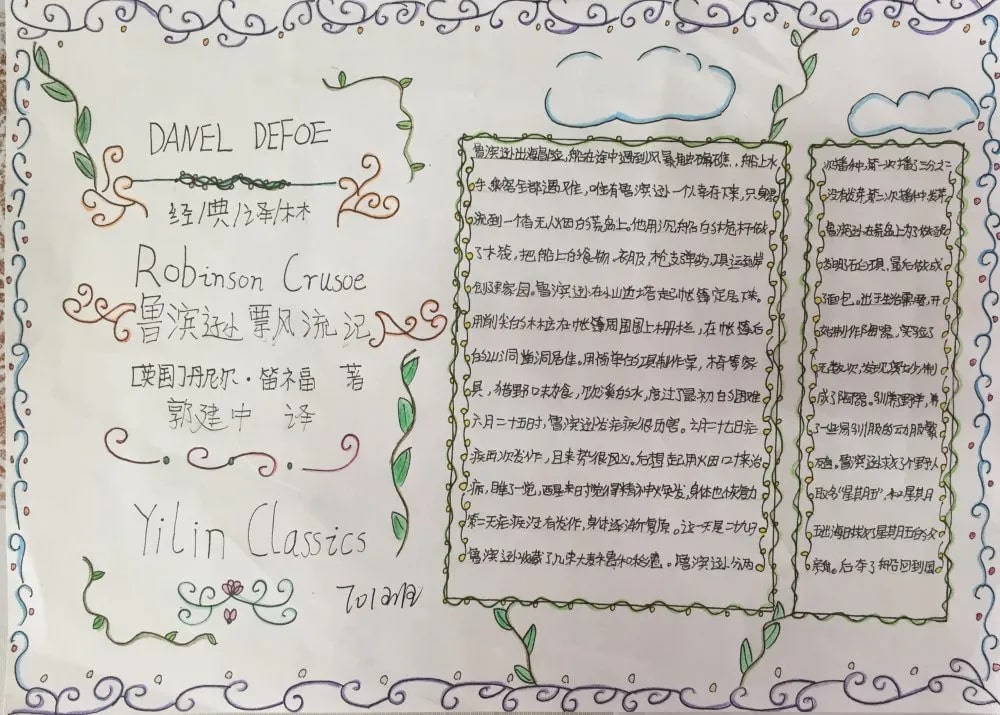 DANEL DEFOE
经/典/译/林
Robinson Crusoe
鲁滨逊票风流记
[英国]丹尼尔·笛福 著
郭建中 译
Yilin Classics
鲁滨逊出海冒险,船在途中遇到风暴触礁,船上水
手乘客全部遇难,唯有鲁滨逊一人幸存下来,只身
流到一个杳无人烟的荒岛上。他用沉船的桅杆做
了木筏,把船上的食物、衣服、枪支弹药、工具运到岸
创建家园。鲁滨逊在小山边搭起帐篷定居下来。
用削尖的木桩在帐篷周围围上栅栏,在帐篷后
的山洞居住。用简单的工具制作桌、椅等家
具,猎野味为食,饮溪的水,度过了最初的困难
六月二十五时,鲁滨逊疟疾很厉害。六月二七日疟
疾再次发作,且来势很凶。后想起用火田口十来治
病,睡了一觉,醒来时觉得精神焕发,身体也恢复力
第二天疟疾没有发作,身体逐渐复原。这一天是二九日
鲁滨逊收藏了几串大麦和稻穗。鲁滨逊分两
次播种,第一次播三分之二
没有放弃第二次播种
鲁滨逊在荒岛上为了做
发明石工具,最后做成
了面包。出于生活需要,开
始制作陶器。实验了
无数次,发现
成了陶器。驯养野羊,养
了一些易驯服的动服繁
殖。鲁滨逊救了个野人
取名“星期五”,和星期
五出海时救了星期五的父
亲。后夺了船回到国